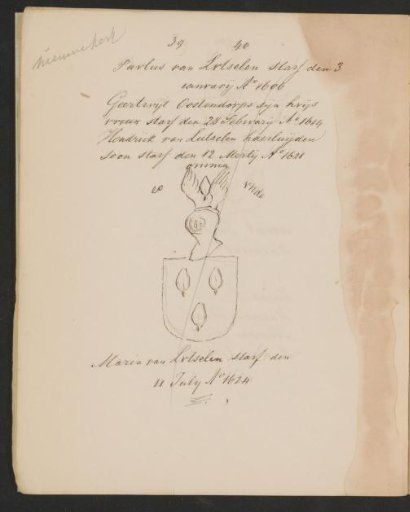 nieuwekerk
39 40
Paulus van Lutselen starf den 3
ianuarij A° 1606
Geertruijt Oostendorps sijn huijs
vrouw starf den 28 Februarij A° 1614
Hendrick van Lutselen haerluijden
soon starf den 12 Mertij A° 1621
omnia
Maria van Lutselen starf den
11 July A° 1624